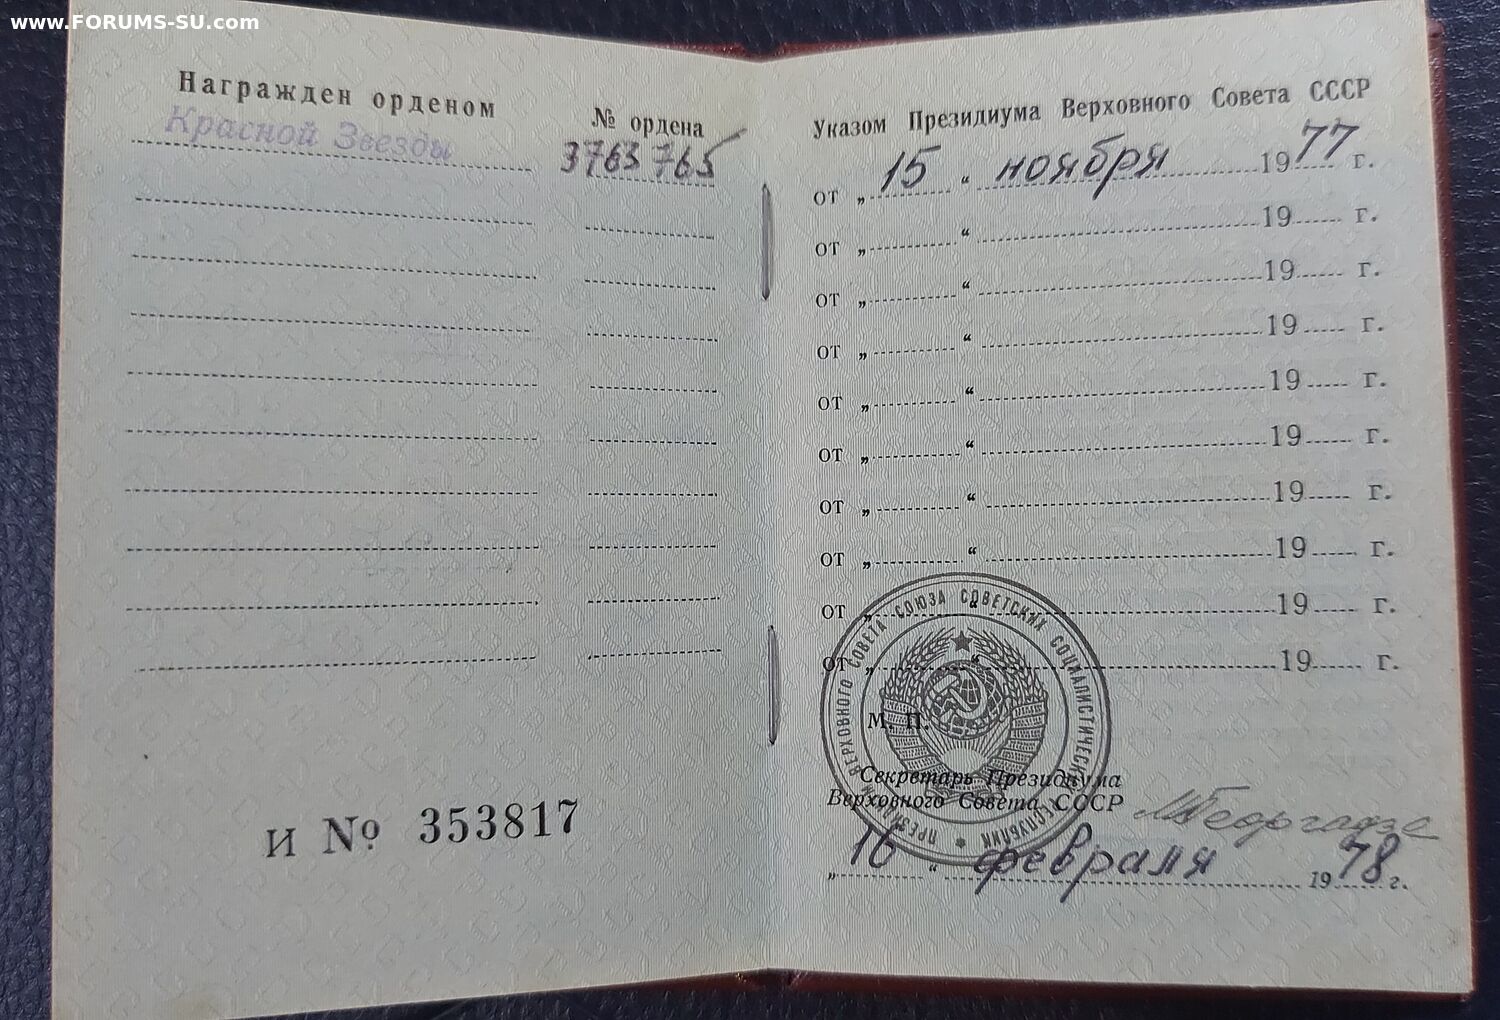 www.FORUMS-SU.com
Награжден орденом
№ ордена
Красной Звезды
3763765
И № 353817
Указом Президиума Верховного Совета СССР
от „15“ ноября 1977 г.
от „ “ 19 г.
от „ “ 19 г.
от „ “ 19 г.
от „ “ 19 г.
от „ “ 19 г.
от „ “ 19 г.
от „ “ 19 г.
от „ “ 19 г.
от „ “ 19 г.
М. П.
ПРЕЗИДИУМ ВЕРХОВНОГО СОВЕТА СОЮЗА СОВЕТСКИХ СОЦИАЛИСТИЧЕСКИХ РЕСПУБЛИК
Секретарь Президиума
Верховного Совета СССР
МГеоргадзе
„16“ февраля 1978 г.